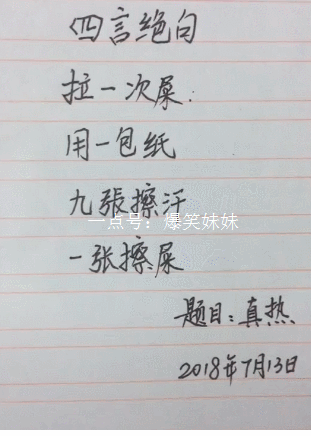 四言绝句
拉一次屎.
用一包纸
九張擦汗
一点号：爆笑妹妹
一张擦屎
题目：真热
2018年7月13日